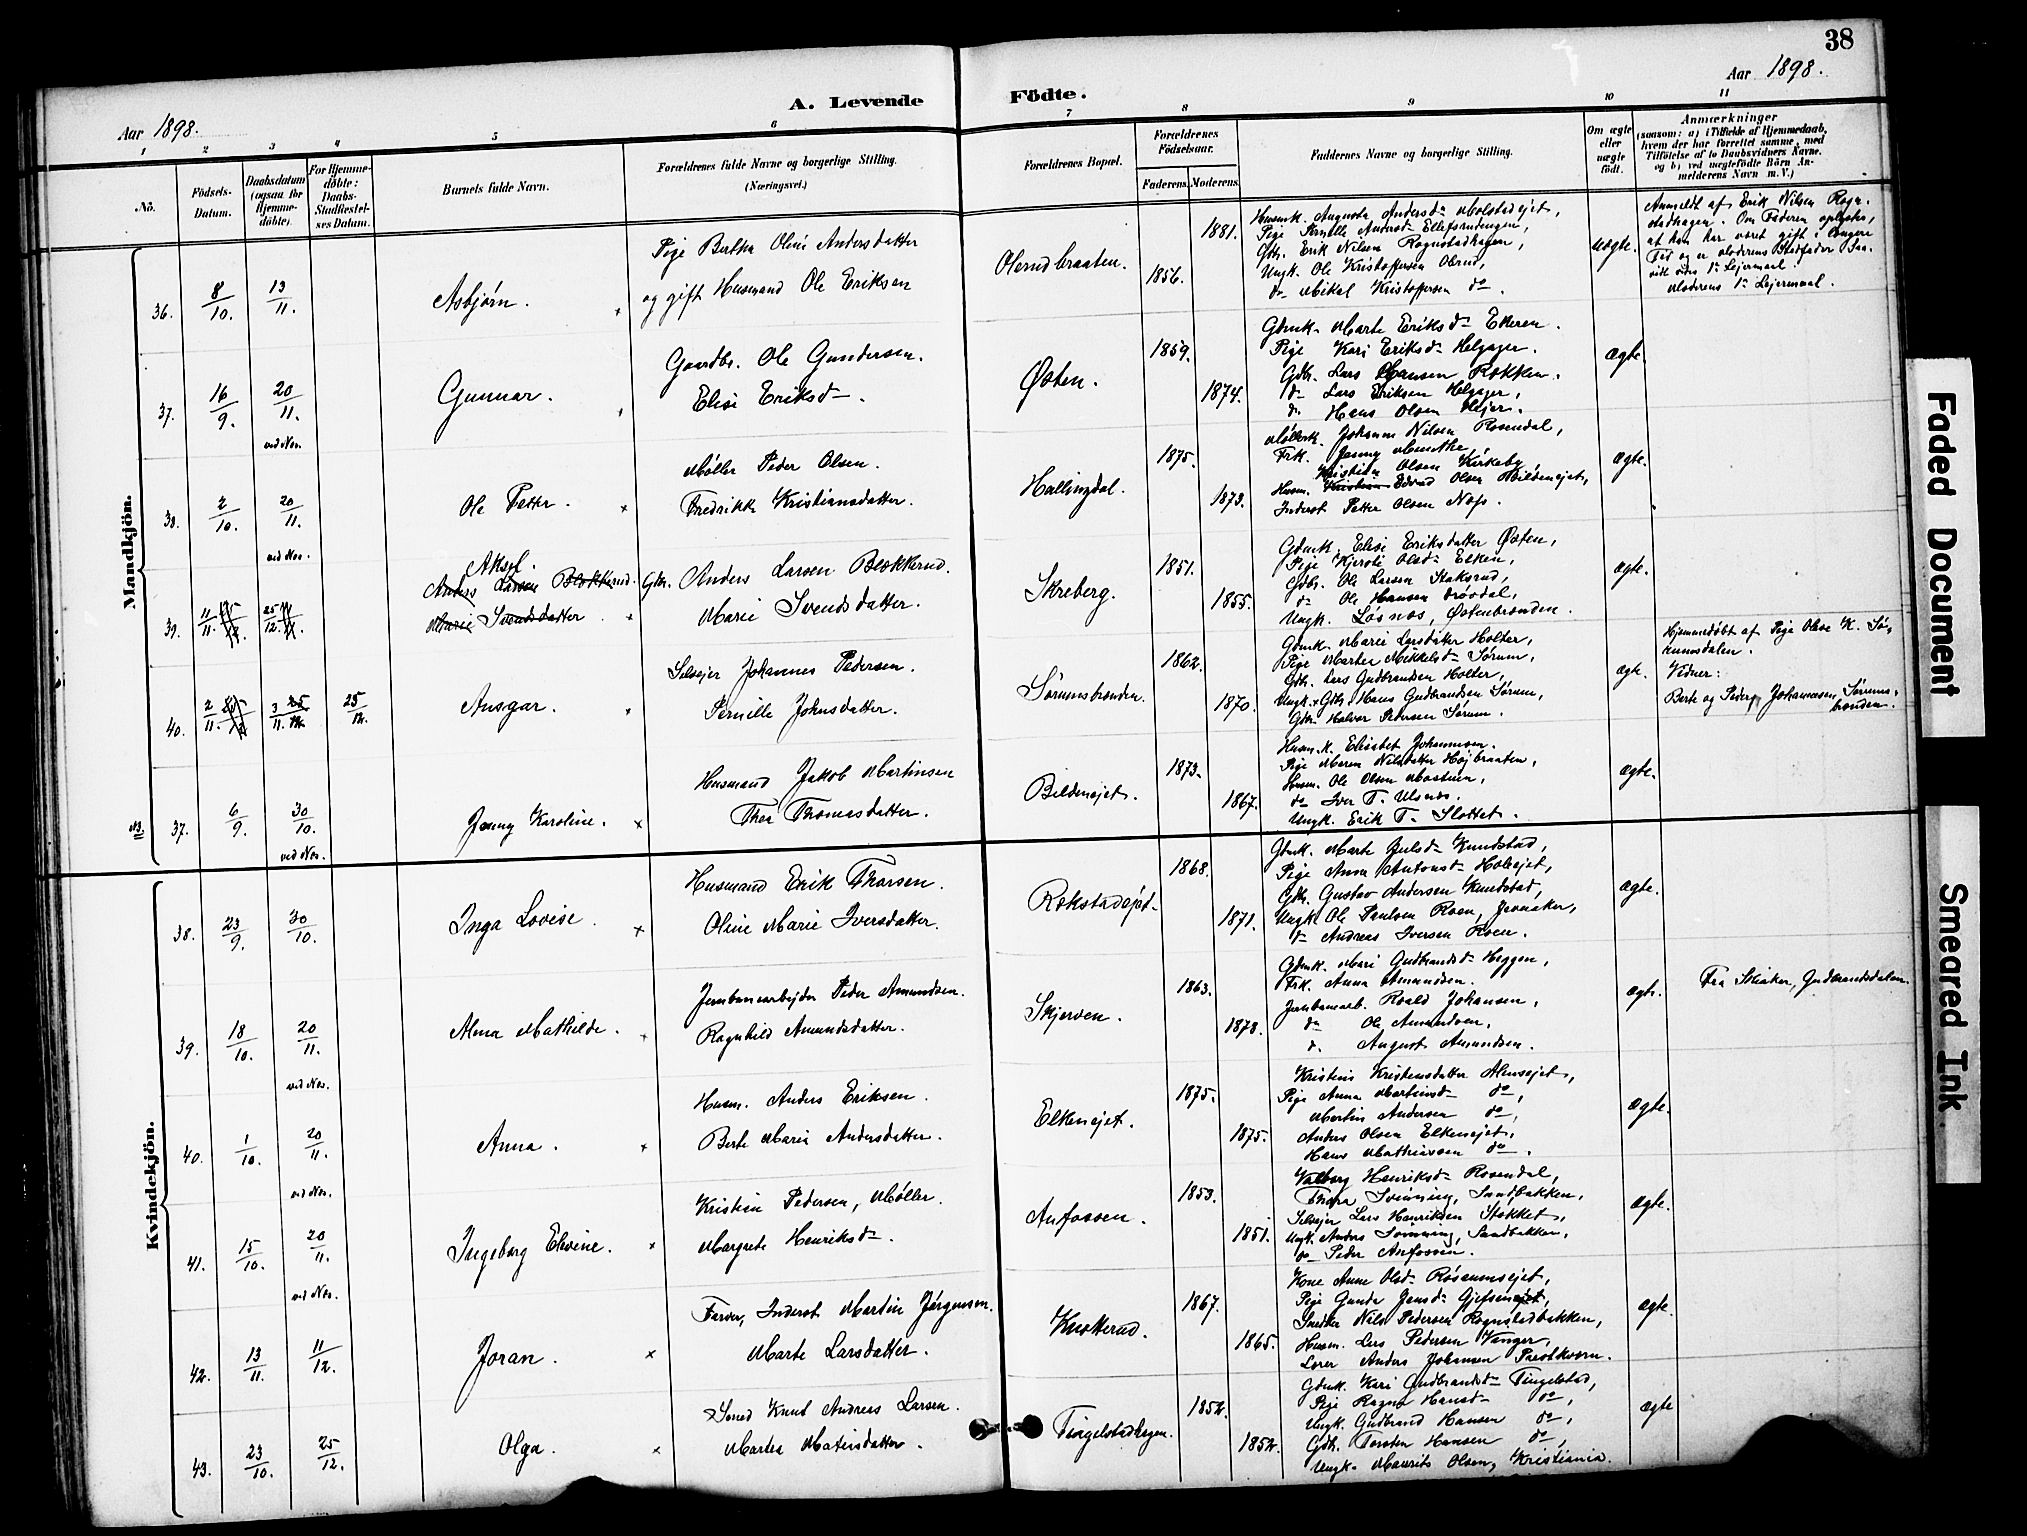 38
Aar 1898.
Aar 1898.
A. Levende Födte.
1 2 3 4 5 6 7 8 9 10 11
No.
Födsels-Datum.
Daabsdatum (ogsaa for Hjemmedöbte).
For Hjemmedöbte: Daabs-Stadfæstelses Datum.
Barnets fulde Navn.
Forældrenes fulde Navne og borgerlige Stilling. (Næringsvei.)
Forældrenes Bopæl.
Forældrenes Födselsaar.
Faderens. Moderens.
Faddernes Navne og borgerlige Stilling.
Om ægte eller uægte födt.
Anmærkninger
(saasom: a) i Tilfælde af Hjemmedaab,
hvem der har forrettet samme, med
Tilföielse af to Daabsvidners Navne,
og b) ved uægtefödte Börn An-
melderens Navn m. V.)
Mandkjön.
36. 8/10. 13/11. Asbjørn.
Pige Bertha Oline Andersdatter
og gift Husmand Ole Eriksen
Olerudbraaten. 1856. 1881.
Husmk. Augusta Andersd. Molstadejet,
Pige Pernille Andersd. Ellefsrudengen,
Gbr. Erik Nilsen Rognstadhagen,
Ungk. Ole Kristoffersen Olerud,
do Mikal Kristoffersen do.
Uægte.
Anmeldt af Erik Nilsen Rogn-
stadhagen. Om Faderen oplystes,
at han har været gift i længere
Tid og er Moderens Stedfader Saa-
vidt vides 1ste Lejermaal.
Moderens 1ste Lejermaal.
37. 16/9. 20/11. ved Nos. Gunnar.
Gaardbr. Ole Gundersen.
Elise Eriksd.
Østen. 1859. 1874.
Gdmk. Marte Eriksd. Ekeren.
Pige Kari Eriksd. Helgager.
Gdb. Lars Hansen Rækken.
do Lars Eriksen Helgager,
do Hans Olsen Hejer.
Ægte.
38. 2/10. 20/11. ved Nos. Ole Petter.
Møller Peder Olsen.
Fredrikke Kristiansdatter.
Hallingdal. 1875. 1873.
Møllerk. Johanne Nilsen Rosendal,
Frk. Jenny Munthe,
Kristian Olsen Kirkeby
Husm. Edvard Olsen Bildenejet,
Inderst Petter Olsen Næs.
Ægte.
39. 11/11. 25/12. Aksel.
Anders Larsen Blekkerud.
Marie Svendsdatter
Gbr. Anders Larsen Blekkerud.
Marie Svendsdatter.
Skreberg. 1851. 1855.
Gdmk. Elise Eriksdatter Østen,
Pige Kjersti Olsd. Elken,
Gdb. Ole Larsen Staksrud,
do Ole Hansen
Ungk. Løsnæs, Østenbranden.
Ægte.
40. 2/11. 3/11. 25/12. Ansgar.
Selvejer Johannes Pedersen.
Pernille Johnsdatter.
Sørumsbranden. 1862. 1870.
Gdmk. Marie Larsdatter Holter,
Pige Marter Mikkelsd. Sørum,
Gdb. Lars Gudbrandsen Holter,
Ungk. & Gbr. Hans Gudbrandsen Sørum,
Gbr. Halvor Pedersen Sørum.
Ægte.
Hjemmedøbt af Pige Olse K. Sø-
rumsdalen.
Vidner:
Berte og Peder Johannesen, Sørums-
branden.
NB. 37. 6/9. 30/10. ved Nos. Jenny Karoline.
Husmand Jakob Martinsen
Thea Thomasdatter.
Bildenejet. 1873. 1867.
Husm.k. Elisabet Johannesen.
Pige Maren Nilsdatter Højbraaten,
Husm. Ole Olsen
do Iver T. Ulsnes.
Ungk. Erik T. Slottet.
Ægte.
Kvindekjön.
38. 23/9. 30/10. Inga Lovise.
Husmand Erik Thorsen.
Oline Marie Iversdatter.
Rækstadejet. 1868. 1871.
Gdmk. Marte Julsd. Kundstad,
Pige Anna Antonsd. Holsejet,
Gdb. Gustav Andersen Kundstad,
Ungk. Ole Paulsen Roen, Jevnaker,
do Andreas Iversen Roen.
Ægte.
39. 18/10. 20/11. ved Nos. Alma Mathilde.
Jernbanearbejder Peder Amundsen.
Ragnhild Amundsdatter.
Skjerven. 1863. 1873.
Gdmk. Mari Gudbrandsd. Heggen,
Frk. Anna Amundsen.
Jernbanearb. Roald Johansen,
do Ole Amundsen,
do August Amundsen.
Ægte.
Fra Skiaker, Gudbrandsdalen
40. 1/10. 20/11. ved Nos. Anna.
Husm. Anders Eriksen.
Berte Marie Andersdatter.
Elkenejet. 1875. 1875.
Kristine Kristensdatter Almsejet,
Pige Anna Martinsd. do,
Martin Andersen do,
Anders Olsen Elkenejet,
Hans Mathiassen do.
Ægte.
41. 15/10. 20/11. ved Nos. Ingeborg Elevine.
Kristian Pedersen, Møller.
Margrete Henriksd.
Anfossen. 1853. 1851.
Valborg Henriksd. Rosendal,
Thora Svinning, Sandbakken,
Selvejer Lars Henriksen Stokket,
Ungk. Anders Svinning, Sandbakken,
do Peder Anfossen.
Ægte.
42. 13/11. 11/12. Joran.
Farver, Inderst Martin Jørgensen.
Marte Larsdatter.
Knatterud. 1867. 1865.
Kone Anne Olsd. Røsumsejet,
Pige Gunda Jensd. Gjefsenejet,
Snedker Nils Pedersen Rognstadbakken,
Husm. Lars Pedersen Vanger,
Lærer Anders Johansen Præstkværn.
Ægte.
43. 23/10. 25/12. Olga.
Smed Knut Andreas Larsen.
Martea Matisdatter.
Tingelstadhagen. 1852. 1852.
Gdmk. Kari Gudbrandsd. Tingelstad,
Pige Ragna Hansd. do,
Ungk. Gudbrand Hansen do,
Gdb. Torsten Hansen do,
Ungk. Maurits Olsen, Kristiania.
Ægte
Faded Document
Smeared Ink.